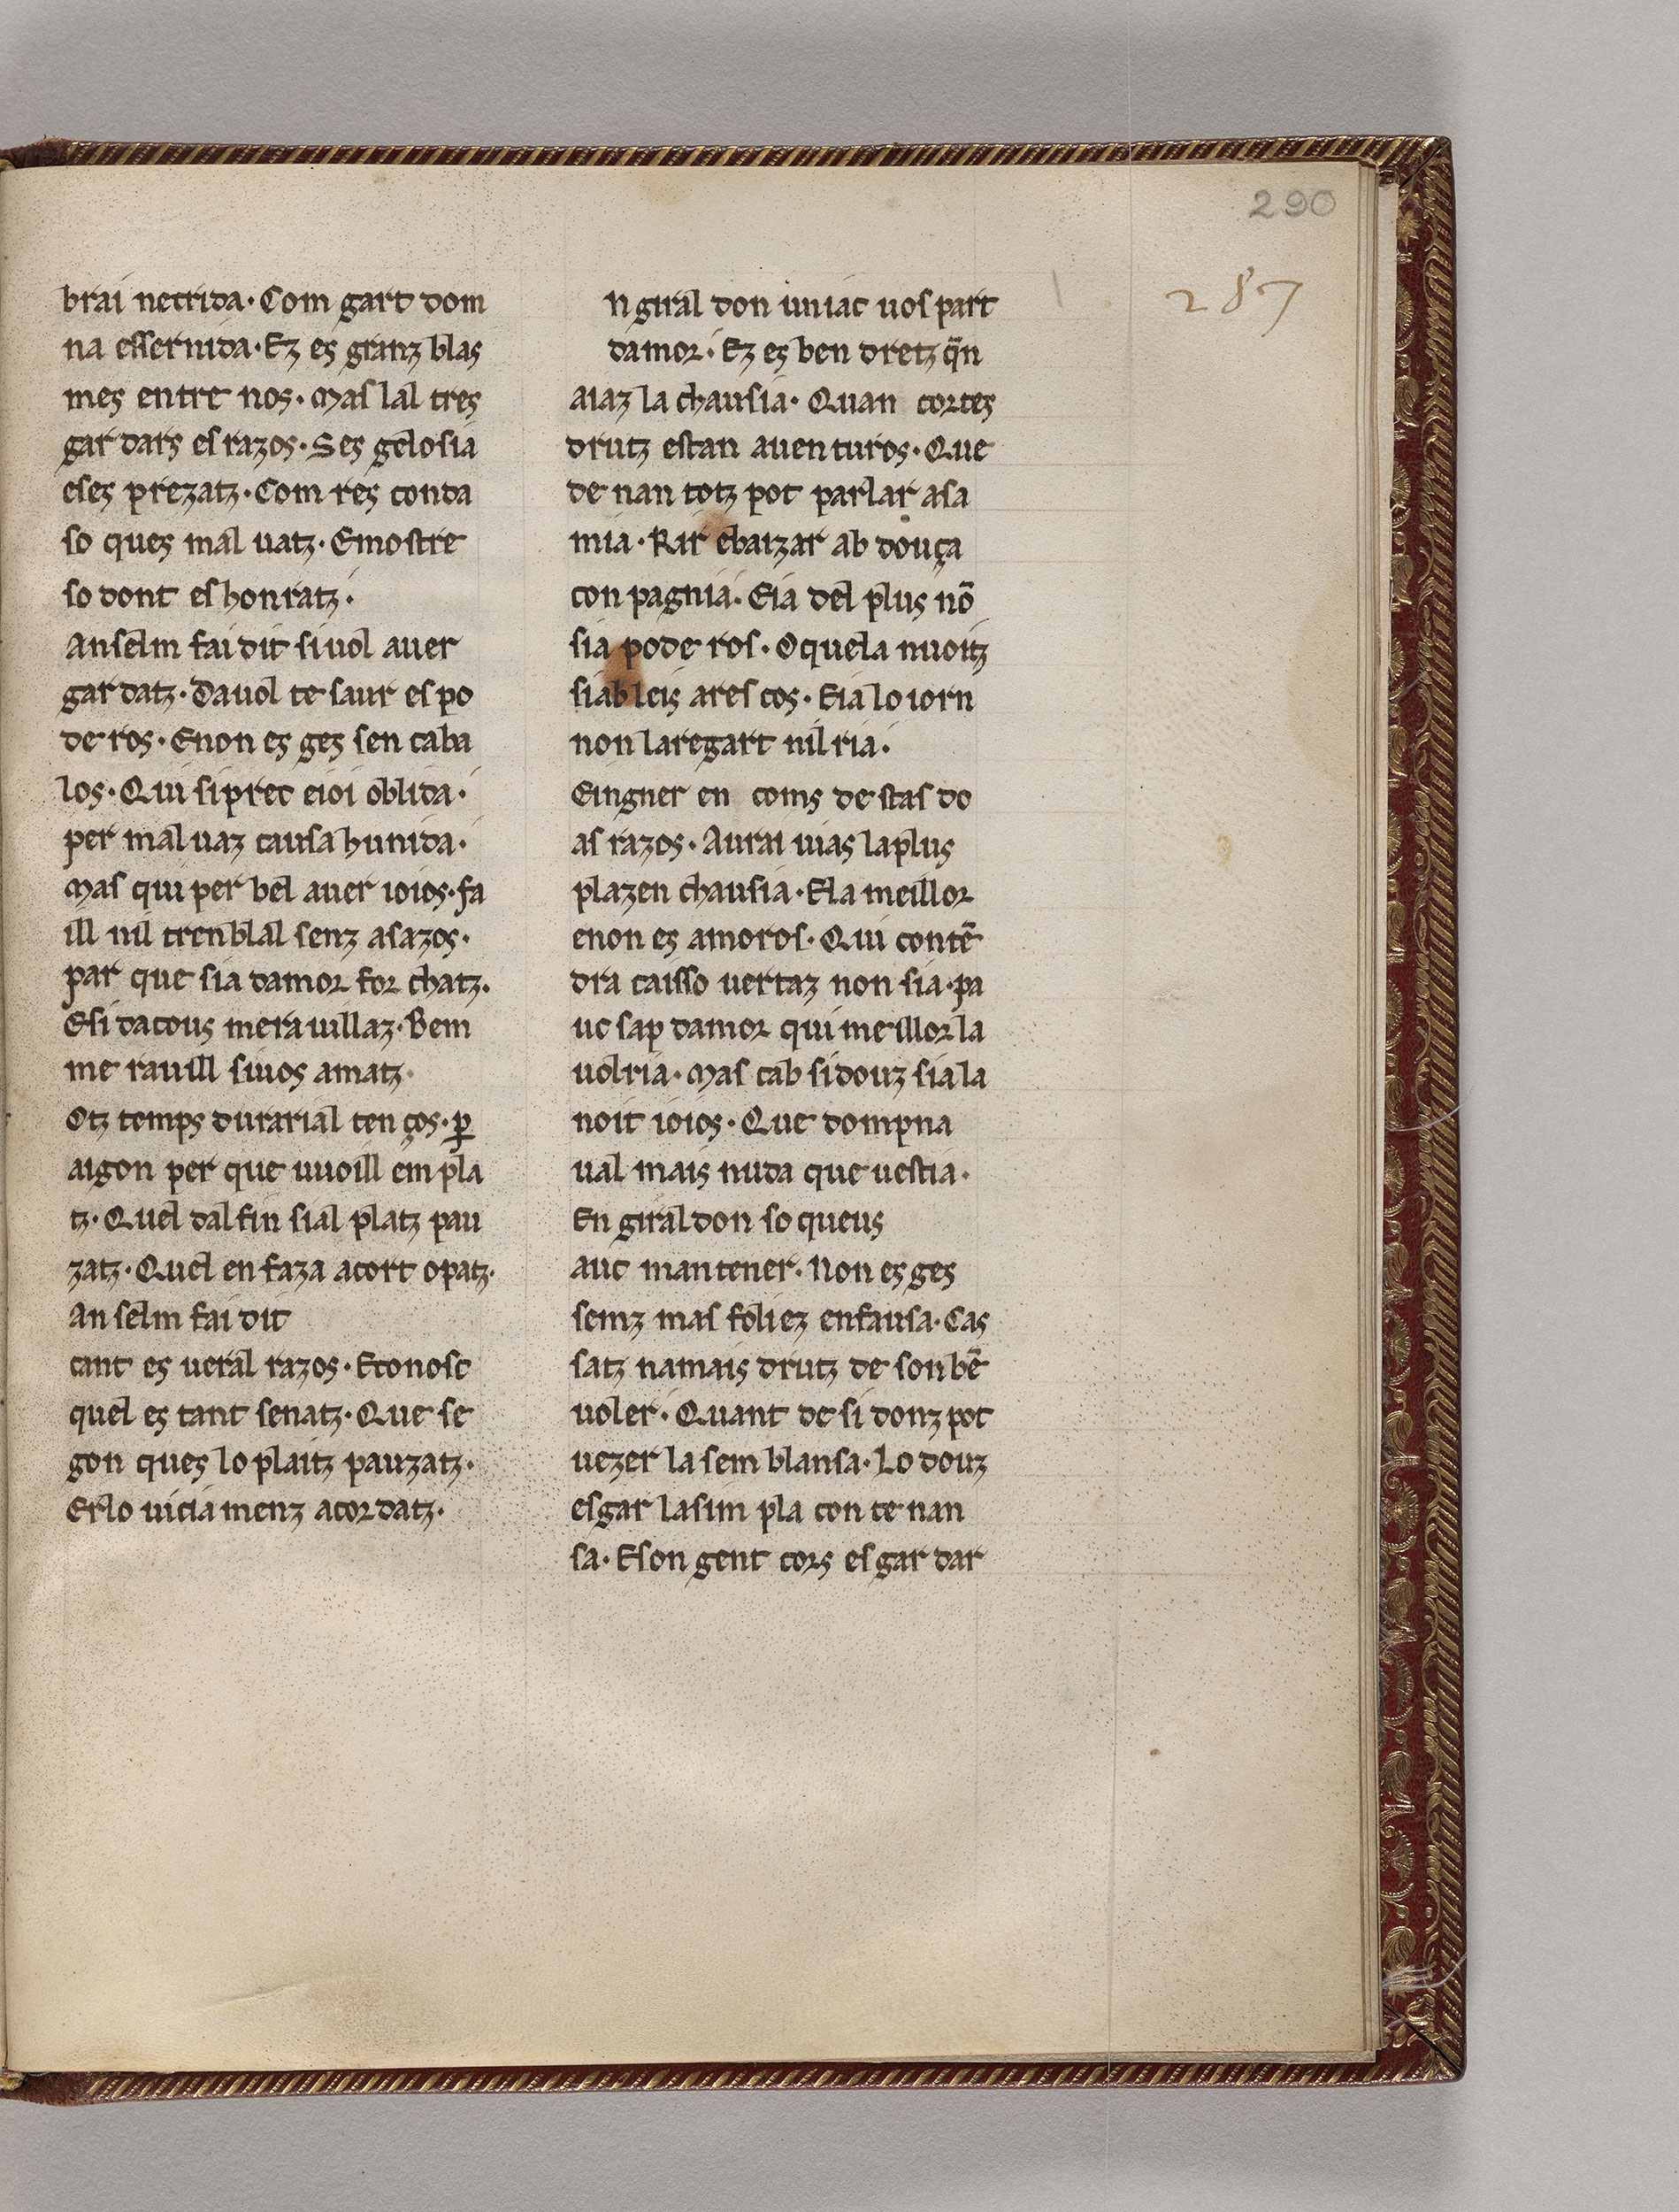 290
287
brai netrida · Com gart dom
na essernida · Ez es granz blas
mes entre nos · Mas lal tres
gar dars es razos · Ses gelosia
eses prezatz · Com res conda
so ques mal uatz · Emostre
so dont es honratz ·
Anselm fai dit si uol auer
gar datz · Dauol te saur es po
de ros · Enon es ges sen caba
los · Qui si prec e ioi oblida ·
per mal uaz causa hunida ·
Mas qui per bel auer ioios · fa
ill nil trenblal senz asazos ·
par que sia damor for chatz ·
Esi dacous mera uillaz · Bem
me rauill si uos amatz ·
Otz temps durarial ten ços · ꝑ
aigon per que uuoill em pla
tz · Quel dalfin sial platz pau
zatz · Quel en faza acort opatz ·
An selm fai dit
tant es ueral razos · Econosc
quel es tant senatz · Que se
gon ques lo plaitz pauzatz ·
Erlo uicia menz acordatz ·
n giral don un iac uos part
damor · Ez es ben dretz q̄n
aiaz la chausia · Quan cortes
drutz estan auen turos · Que
de nan totz pot parlar asa
mia · Rir ebaizar ab douça
con pagnia · Eia del plus nō
sia pode ros · O quela nuoitz
siab leis a res cos · Eia lo iorn
non la regart nil ria ·
Eingner en coms de stas do
as razos · Aurai uias la plus
plazen chausia · Ela meillor
enon es amoros · Qui contē
dra caisso uertaz non sia · pa
uc sap damor qui meillor la
uolria · Mas cab si douz sia la
noit ioios · Que dompna
ual mais nuda que uestia ·
En giral don so queus
auc mantener · Non es ges
senz mas foli ez enfansa · Cas
satz namais drutz de son bē
uoler · Quant de si donz pot
uezer la sem blansa · Lo douz
esgar la sim pla con te nan
sa · E son gent cors es gar dar